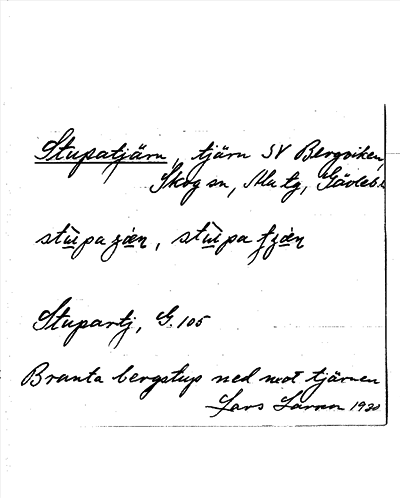 Stupatjärn, tjärn SV Bergviken,
Skog sn, Ala tg, Gävleb. l.
Stupartj, G. 105
Branta bergstup ned mot tjärnen
Lars Larsson 1930